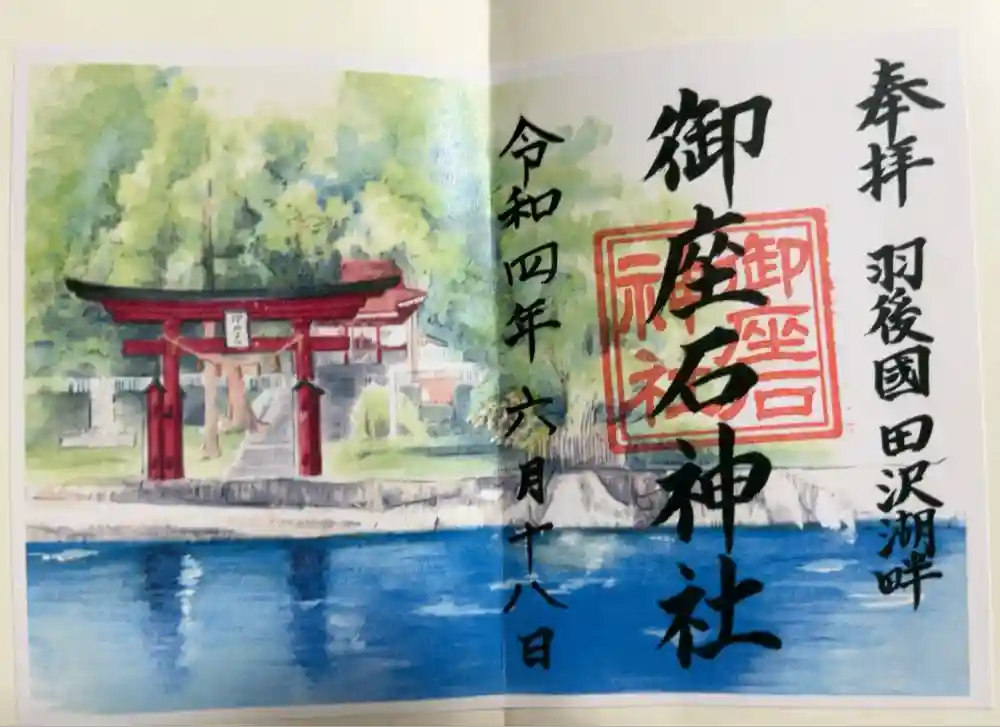 奉拝 羽後國田沢湖畔
御座石神社
御座石
神社
令和四年六月十八日